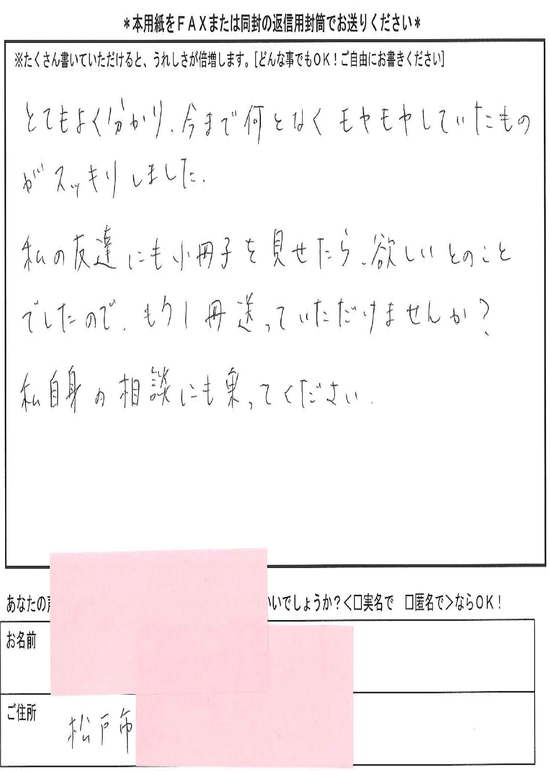 ＊本用紙をＦＡＸまたは同封の返信用封筒でお送りください＊
※たくさん書いていただけると、うれしさが倍増します。[どんな事でもＯＫ！ご自由にお書きください]
とてもよく分かり、今まで何となくモヤモヤしていたもの
がスッキリしました.
私の友達にも小冊子を見せたら、欲しいとのこと
でしたので、もう1冊送っていただけませんか?
私自身の相談にも乗ってください.
あなたの
いいでしょうか？＜□実名で　□匿名で＞ならＯＫ！
お名前
ご住所
松戸市